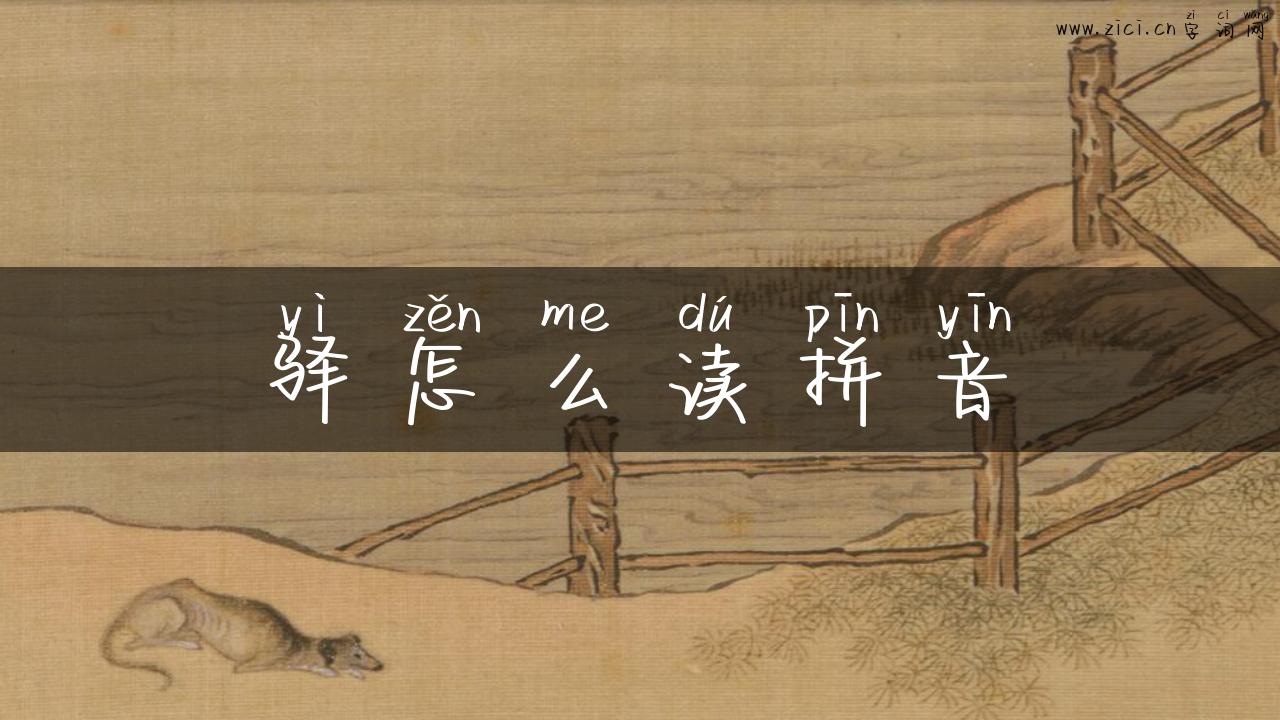 zi ci wang
www.zici.cn 字词网
yì zěn me dú pīn yīn
驿怎么读拼音